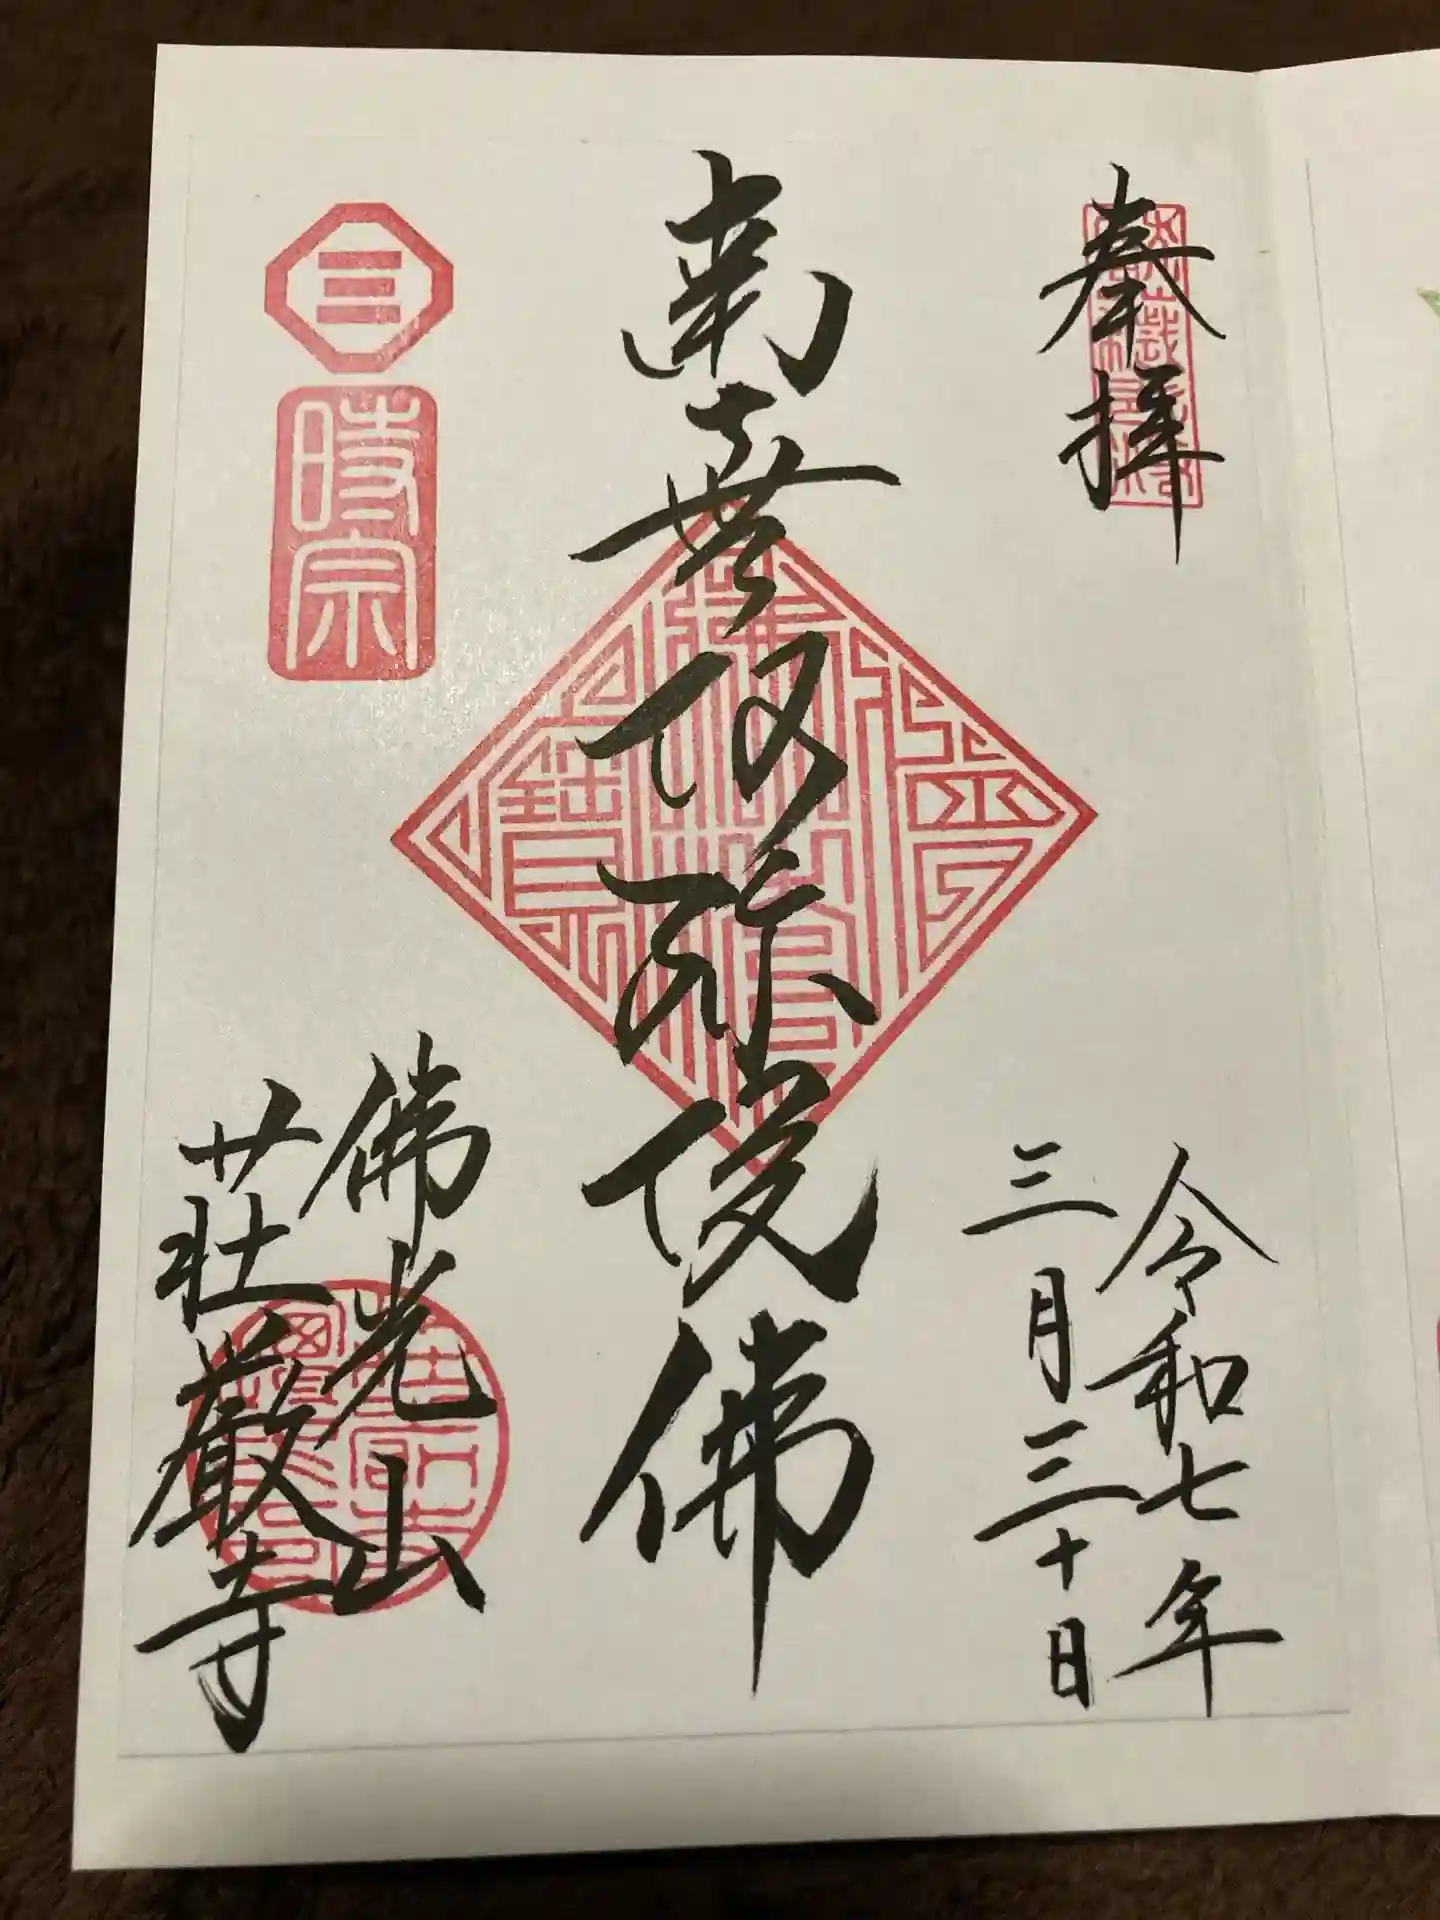 奉拝
令和七年
三月三十日
南無阿弥陀佛
佛光山
荘厳寺
時宗